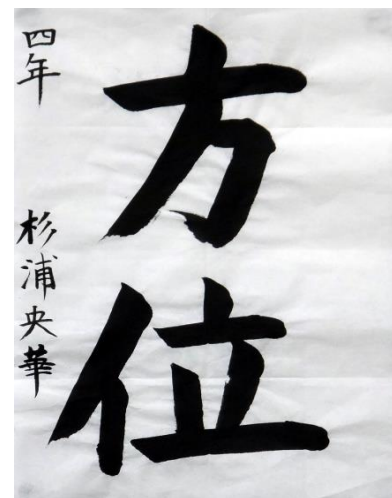 方位
四年
杉浦央華